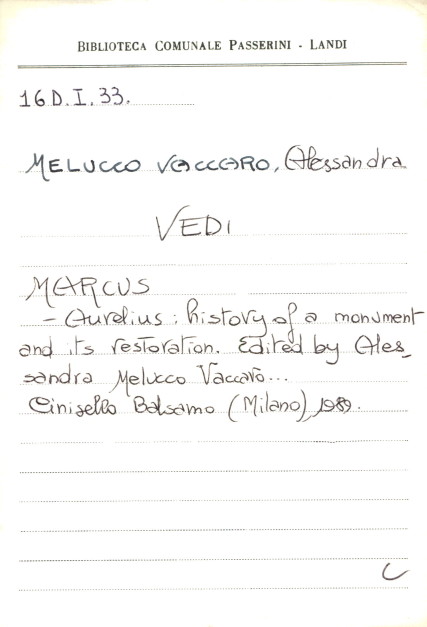 BIBLIOTECA COMUNALE PASSERINI - LANDI
16 D. I. 33.
MELUCCO VACCARO, Alessandra
VEDI
MARCUS
- Aurelius : history of a monument
and its restoration. Edited by Ales_
sandra Melucco Vaccaro...
Cinisello Balsamo (Milano), 1989.
C